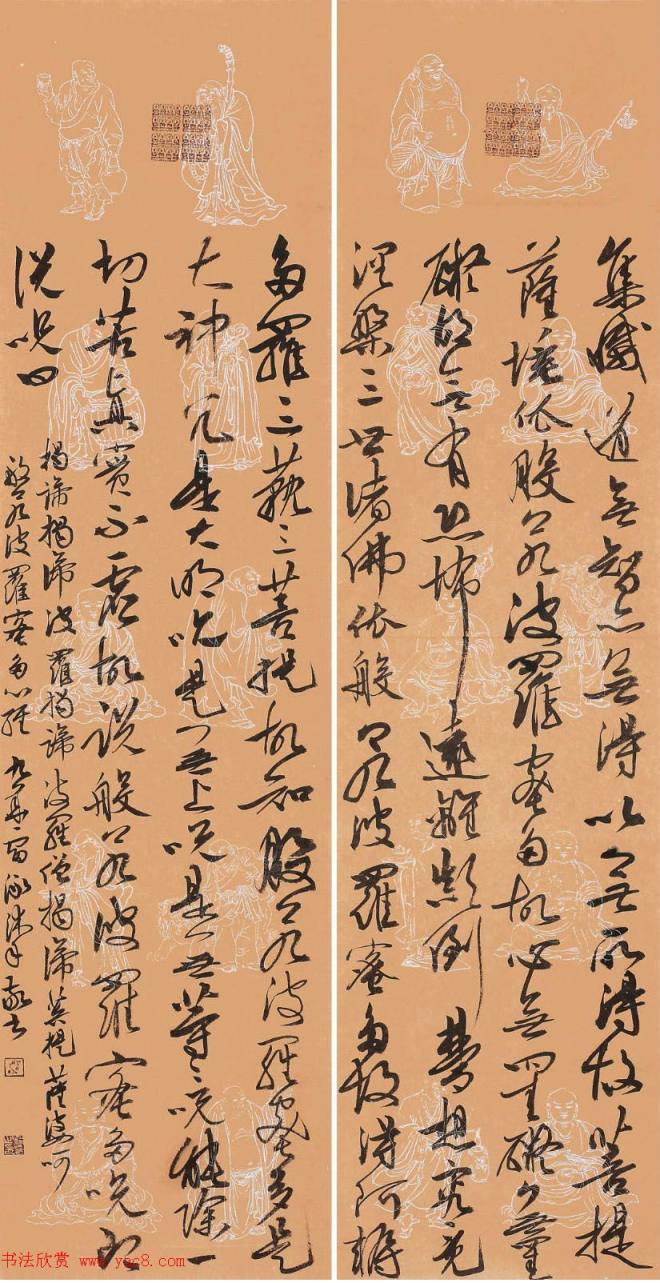 集滅道無智亦無得以無所得故菩提
薩埵依般若波羅蜜多故心無罣礙無罣
礙故無有恐怖遠離顛倒夢想究竟
涅槃三世諸佛依般若波羅蜜多故得阿耨
多羅三藐三菩提故知般若波羅蜜多是
大神咒是大明咒是無上咒是無等等咒能除一
切苦真實不虛故說般若波羅蜜多咒即
說咒曰
揭諦揭諦波羅揭諦波羅僧揭諦菩提薩婆訶
般若波羅蜜多心經 敬書
书法欣赏 www.yac8.com